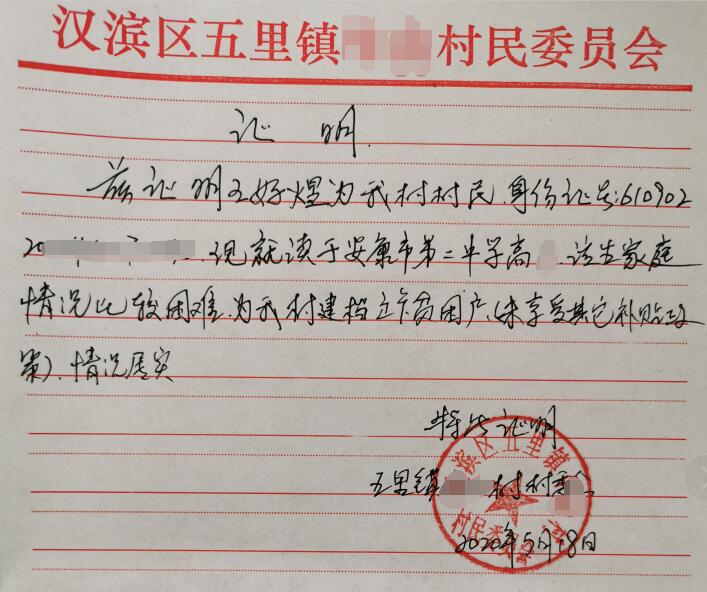 汉滨区五里镇 村民委员会
证 明
兹证明王好煜为我村村民,身份证号:610902
20 .现就读于安康市第二中学高 .该生家庭
情况比较困难,为我村建档立卡贫困户,(未享受其它补贴政
策).情况属实
特此证明
五里镇 村村委会
2020年5月18日
滨区五里镇
村民委